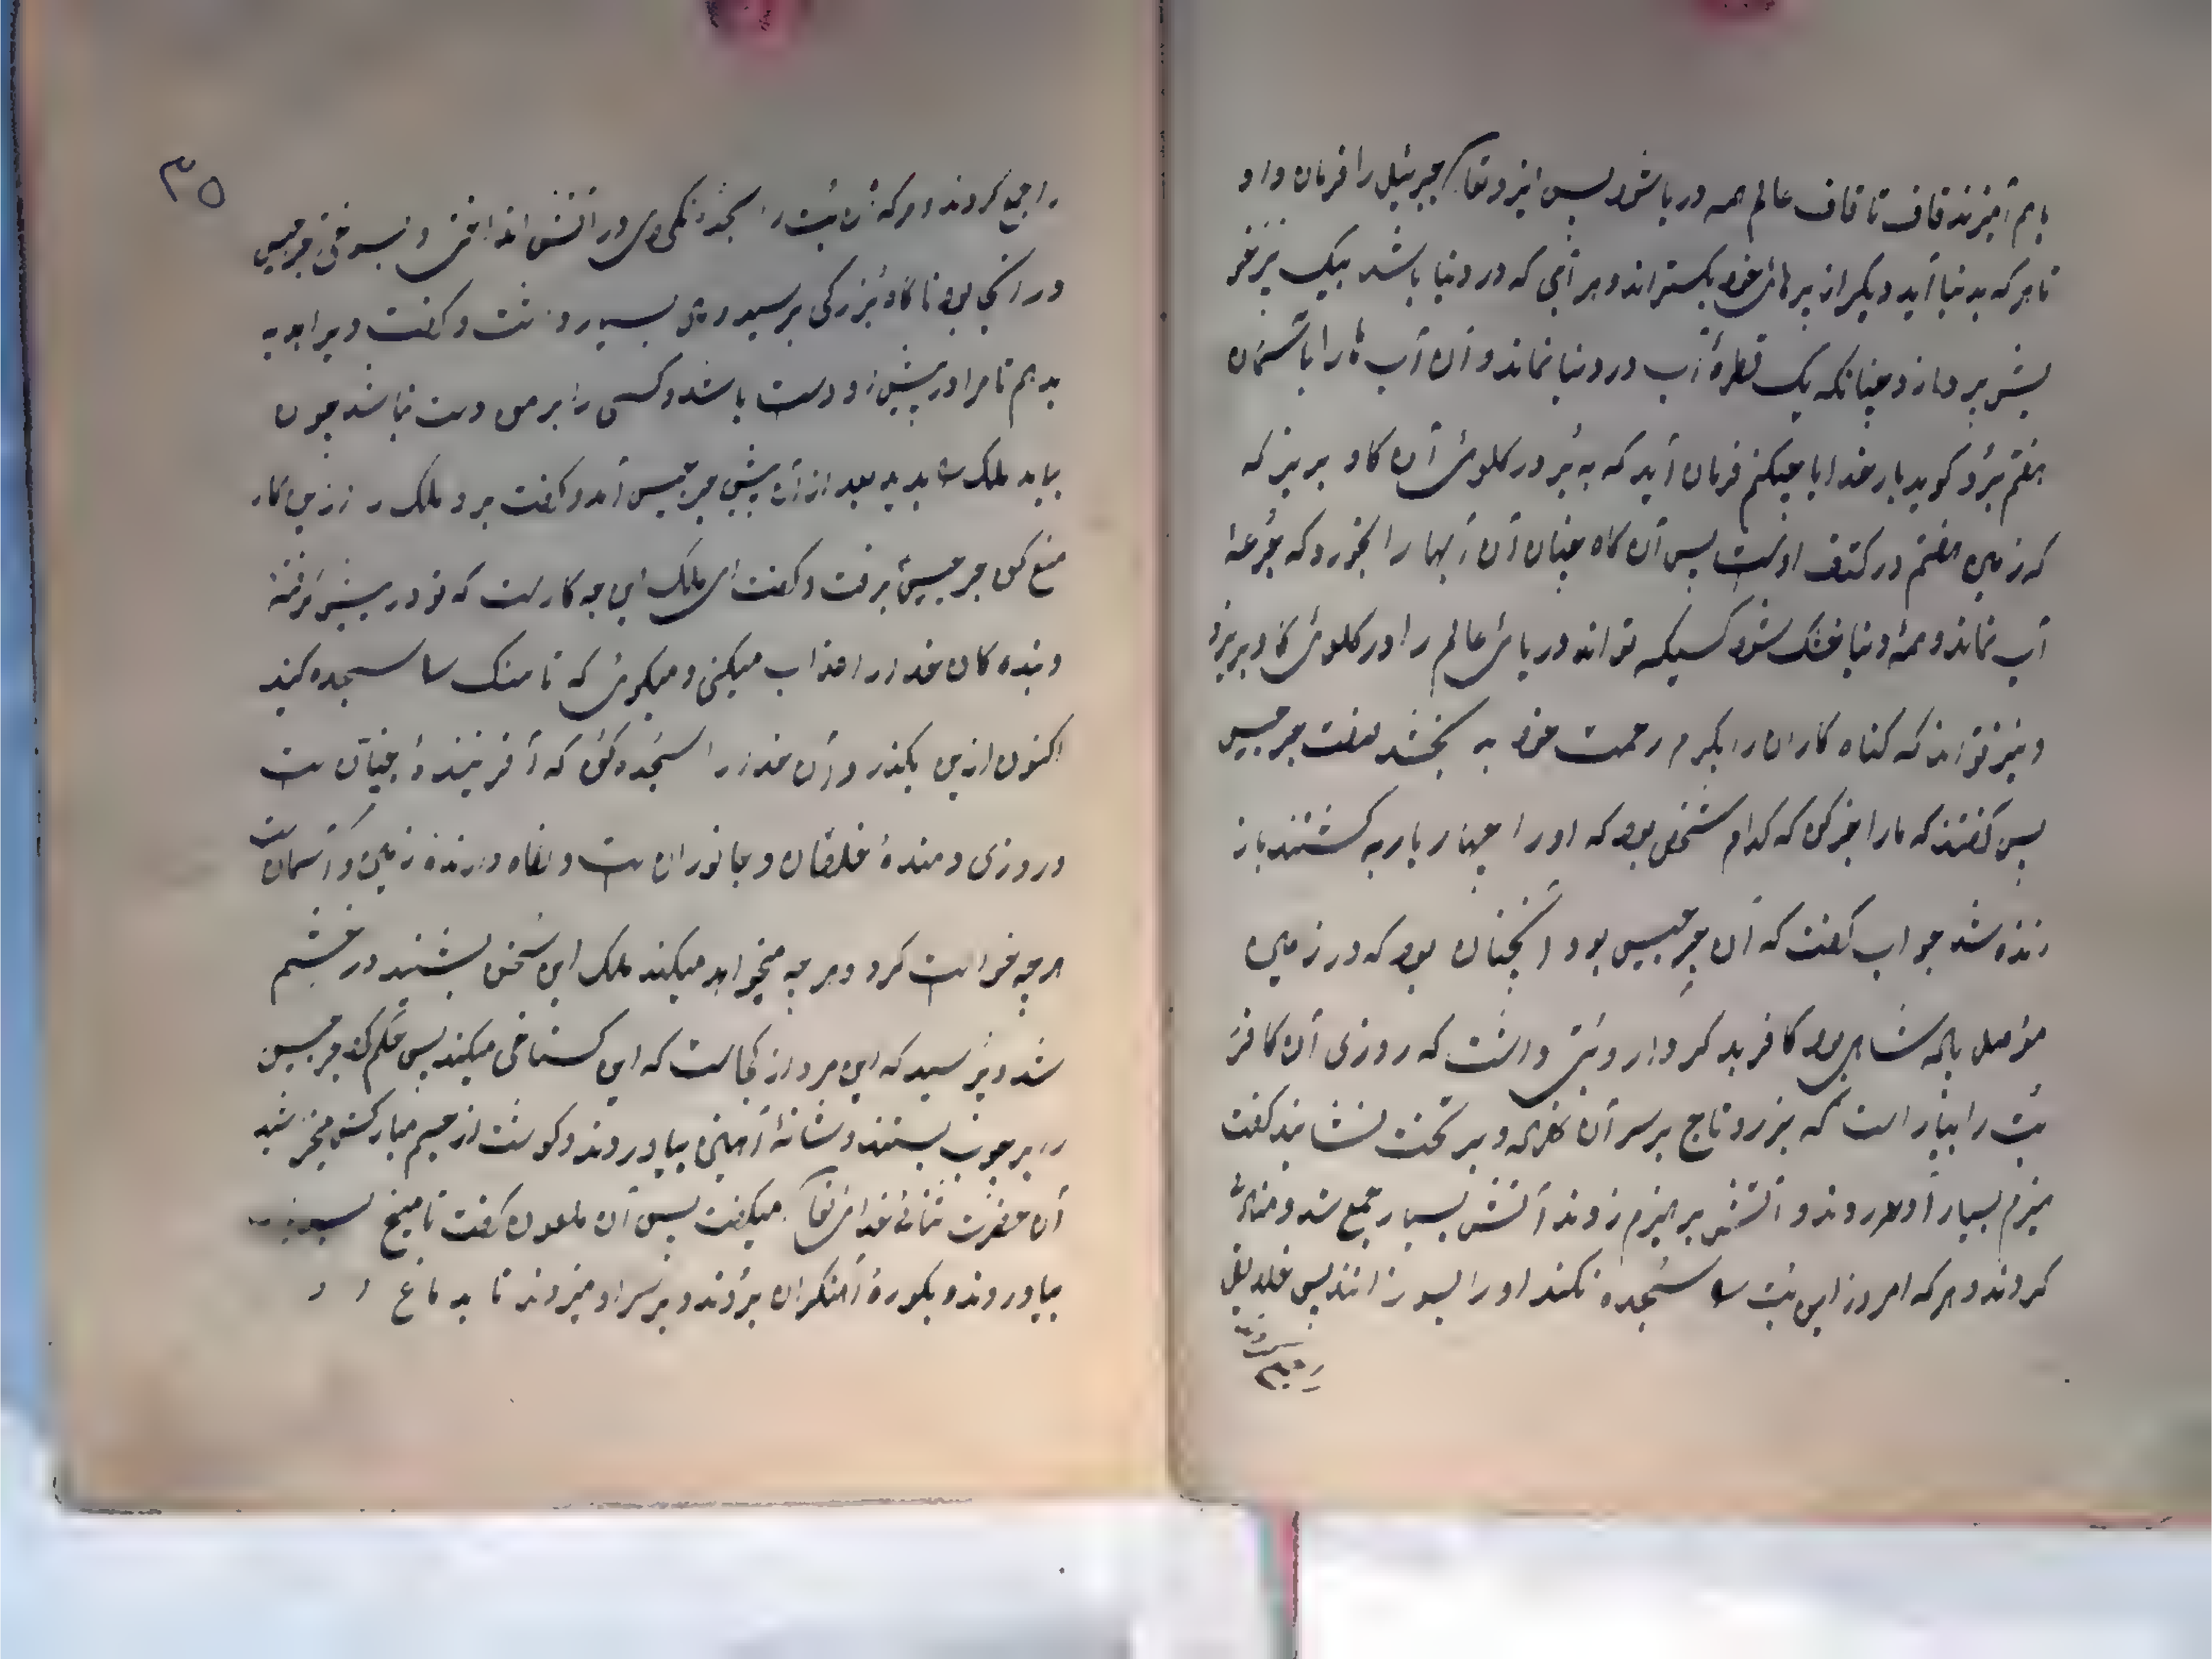 با هم آمیزند قاف تا قاف عالم همه دریا شود پس ایزد تعالی جبرئیل را فرمان داد
تا هر که بدنیا آید و یکی از پرهای خود بکستراند و هر آبی که در دنیا باشد بیک پر خود
بردارد چنانکه یک قطرهٔ آب در دنیا نماند و آن آب ها را بآسمان
هفتم برد کوید بار خدایا چکنم فرمان آید که به بر در کلوی آن کاو بریز که
که زمین هفتم در کتف اوست پس آن کاه چنان آن آبها را بخورد که جرعهٔ
آب نماند و همهٔ دنیا خشک شود کسیکه تواند دریای عالم را در کلوی کاو بریزد
و نیز تواند که کناه کاران را بکرم رحمت خود به بخشد گفت جرجیس
پس کفتند که ما را خبر کن که کدام شخص بود که او را چهار بار به کشتند باز
زنده شد جواب کفت که آن جرجیس بود آنچنان بود که در زمین
موصل پادشاهی بود کافر بد کردار و بتی داشت که روزی آن کافر
بت را بیاراست که بزر و تاج بر سر آن نهاد و بر تخت نشانید کفت
هیزم بسیار آوردند و آتش بر هیزم زدند آتش بسیار جمع شد و منادی
کردند و هر که امروز این بت را سجده نکند او را بسوزانند پس خلایق
را جمع کردند و هر که آن بت را سجده نکردی در آتش انداختی و بسوختی جرجیس
در آنجا بود ناکاه بزرکی برسید و مال بسیار داشت و کفت ویرا هدیه
بدهم تا مرا در پیش او دست باشد و کسی را بر من دست نباشد چون
بیامد ملک را بدید بعد از آن پیش جرجیس آمد و کفت برو ملک را ازین کار
منع کن جرجیس برفت و کفت ای ملک این چه کارست که تو در پیش کرفتهٔ
و بنده کان خدا را عذاب میکنی و میکوئی که تا سنک را سجده کنید
اکنون ازین بکذر و آن خدا را سجده کن که آفرینندهٔ جهان است
و روزی دهندهٔ خلقان و جانوران است و نکاه دارندهٔ زمین و آسمان است
هر چه خواست کرد و هر چه میخواهد میکند ملک این سخن بشنید در خشم
شد و پرسید که این مرد از کجاست که این کستاخی میکند پس حکم کرد جرجیس
را بر چوب بستند و شانهٔ آهنین بیاوردند و کوشت از جسم مبارکش میخراشید
آن حضرت ثنای خدای تعالی میکفت پس آن ملعون کفت تا میخ
بیاوردند و بکورهٔ آهنکران بردند و بر سر او میزدند تا بدماغ او
۳۵